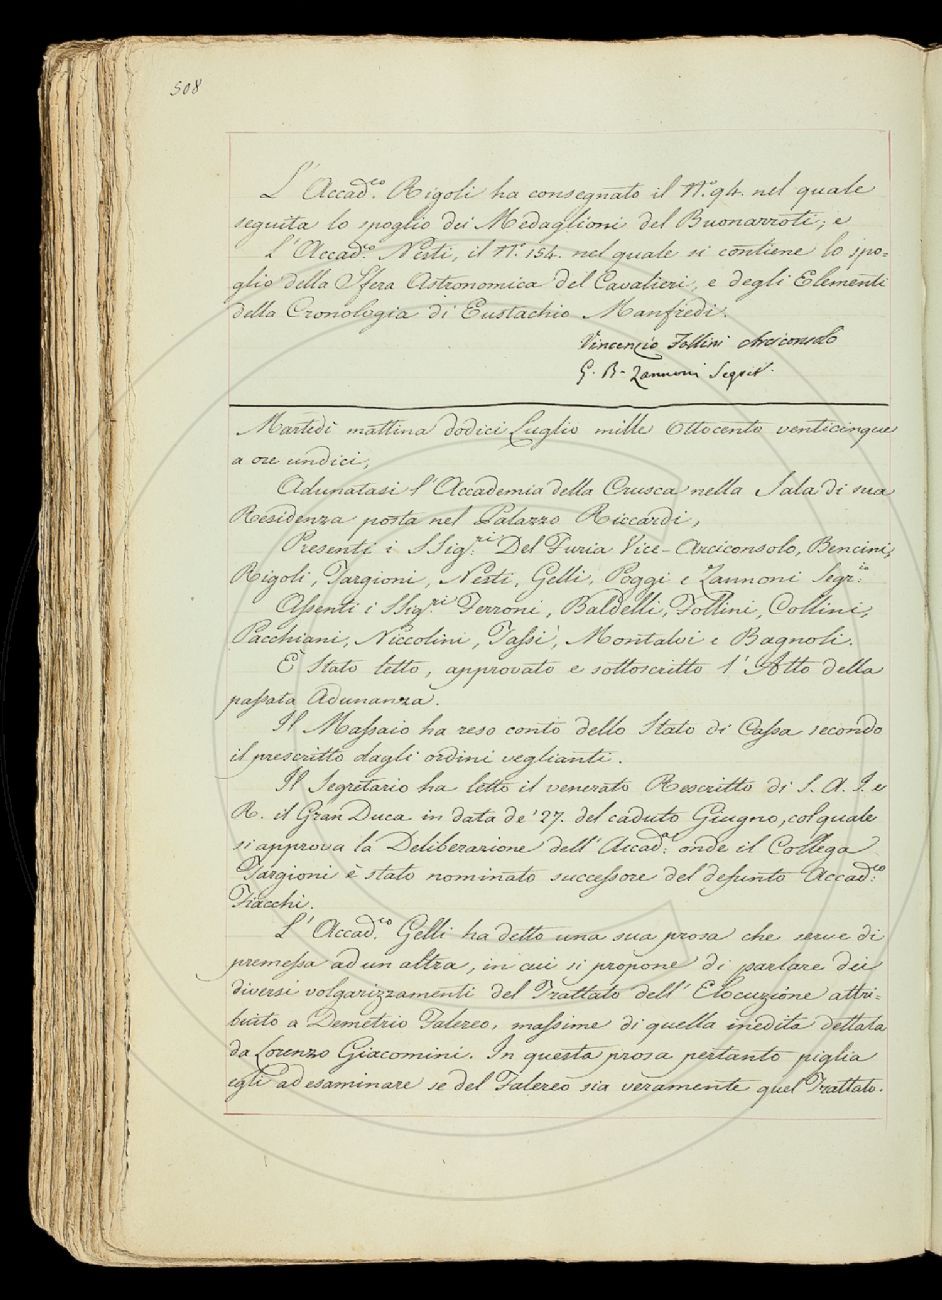 508
L'Accad.co Rigoli ha consegnato il N.o 94. nel quale
seguita lo spoglio dei Medaglioni del Buonarroti; e
L'Accad.co Nesti, il N.o 154. nel quale si contiene lo spo=
glio della Sfera Astronomica del Cavalieri, e degli Elementi
della Cronologia di Eustachio Manfredi.
Vincenzio Follini Arciconsolo
G. B. Zannoni Segret.
Martedì mattina dodici Luglio mille Ottocento venticinque
a ore undici,
Adunatasi l'Accademia della Crusca nella Sala di sua
Residenza posta nel Palazzo Riccardi,
Presenti i SSig.ri Del Furia Vice-Arciconsolo, Bencini,
Rigoli, Targioni, Nesti, Gelli, Poggi e Zannoni Segr.io
Assenti i SSig.ri Ferroni, Baldelli, Follini, Collini,
Pacchiani, Niccolini, Tassi, Montalvi e Bagnoli.
È stato letto, approvato e sottoscritto l'Atto della
passata Adunanza.
Il Massaio ha reso conto dello Stato di Cassa secondo
il prescritto dagli ordini veglianti.
Il Segretario ha letto il venerato Rescritto di S. A. I. e
R. il Gran Duca in data de' 27. del caduto Giugno, col quale
si approva la Deliberazione dell'Accad.a onde il Collega
Targioni è stato nominato successore del defunto Accad.co
Fiacchi.
L'Accad.co Gelli ha detto una sua prosa che serve di
premessa ad un altra, in cui si propone di parlare dei
diversi volgarizzamenti del Trattato dell'Elocuzione attri=
buito a Demetrio Falereo, massime di quella inedita dettata
da Lorenzo Giacomini. In questa prosa pertanto piglia
egli ad esaminare se del Falereo sia veramente quel Trattato.